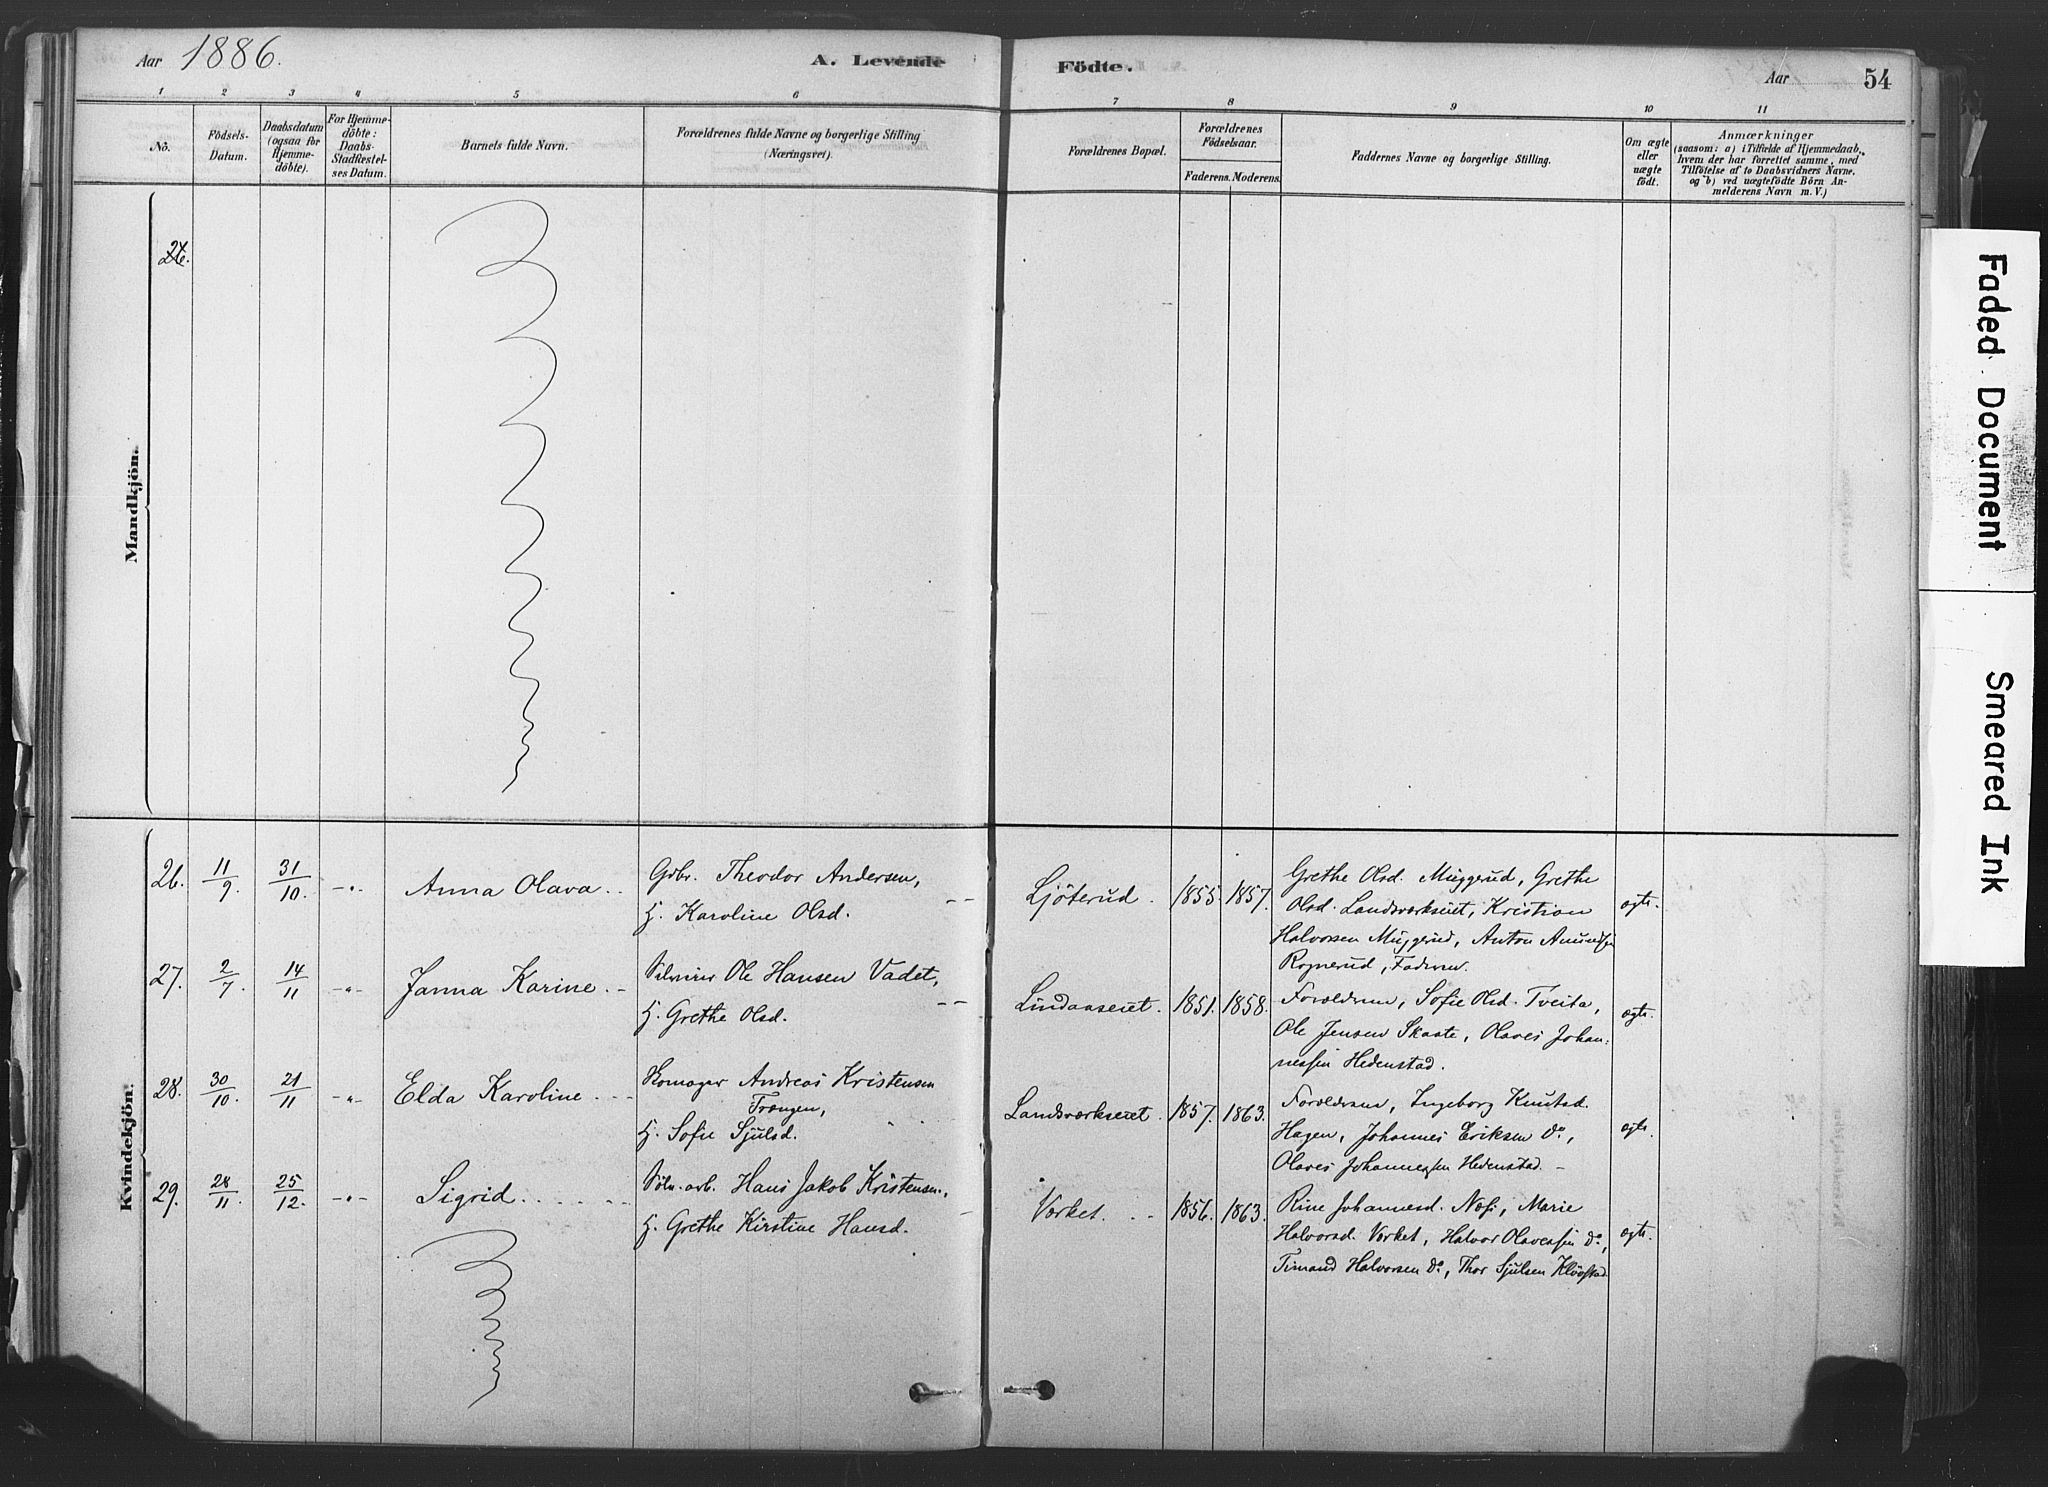 Aar 1886.
A. Levende Födte.
Aar
54
1 2 3 4 5 6 7 8 9 10 11
No.
Födsels-
Datum.
Daabsdatum
(ogsaa for
Hjemme-
döbte).
For Hjemme-
döbte:
Daabs-
Stadfæstel-
ses Datum.
Barnets fulde Navn.
Forældrenes fulde Navne og borgerlige Stilling
(Næringsvei).
Forældrenes Bopæl.
Forældrenes
Födselsaar.
Faderens. Moderens.
Faddernes Navne og borgerlige Stilling.
Om ægte
eller
uægte
födt.
Anmærkninger
(saasom: a) i Tilfælde af Hjemmedaab,
hvem der har forrettet samme, med
Tilföielse af to Daabsvidners Navne,
og b) ved uægtefödte Börn An-
melderens Navn m. V.)
Mandkjön.
Kvindekjön.
26. 11/9. 31/10. -"- Anna Olava
Gdbr. Theodor Andersen,
H. Karoline Olsd.
Ljöterud. 1855. 1857.
Grethe Olsd. Muggerud, Grethe
Olsd. Landsværkseiet, Kristian
Halvorsen Muggerud, Anton Amundsen
Rognerud, Faderen.
ægte.
27. 2/7. 14/11 -"- Janna Karine
Ole Hansen Vadet,
H. Grethe Olsd.
Lindaaseiet. 1851. 1858.
Forældrene, Sofie Olsd. Tveita,
Ole Jensen Skaate, Olaves Johan-
nessen Hedenstad.
ægte.
28. 30/10. 21/11 -"- Elda Karoline
Skomager Andreas Kristensen
Trangen,
H. Sofie Sjulsd.
Landsværkseiet. 1857. 1863.
Forældrene, Ingeborg Knutsd.
Hagen, Johannes Eriksen do,
Olaves Johannessen Hedenstad.
ægte.
29. 28/11. 25/12. -"- Sigrid
Sölv.arb. Hans Jakob Kristensen,
H. Grethe Kirstine Hansd.
Værket. 1856. 1863.
Rine Johannesd. Næss, Marie
Halvorsd. Værket, Halvor Olavessen do,
Timand Halvorsen do, Thor Sjulsen Klövstad
ægte.
Faded Document
Smeared Ink